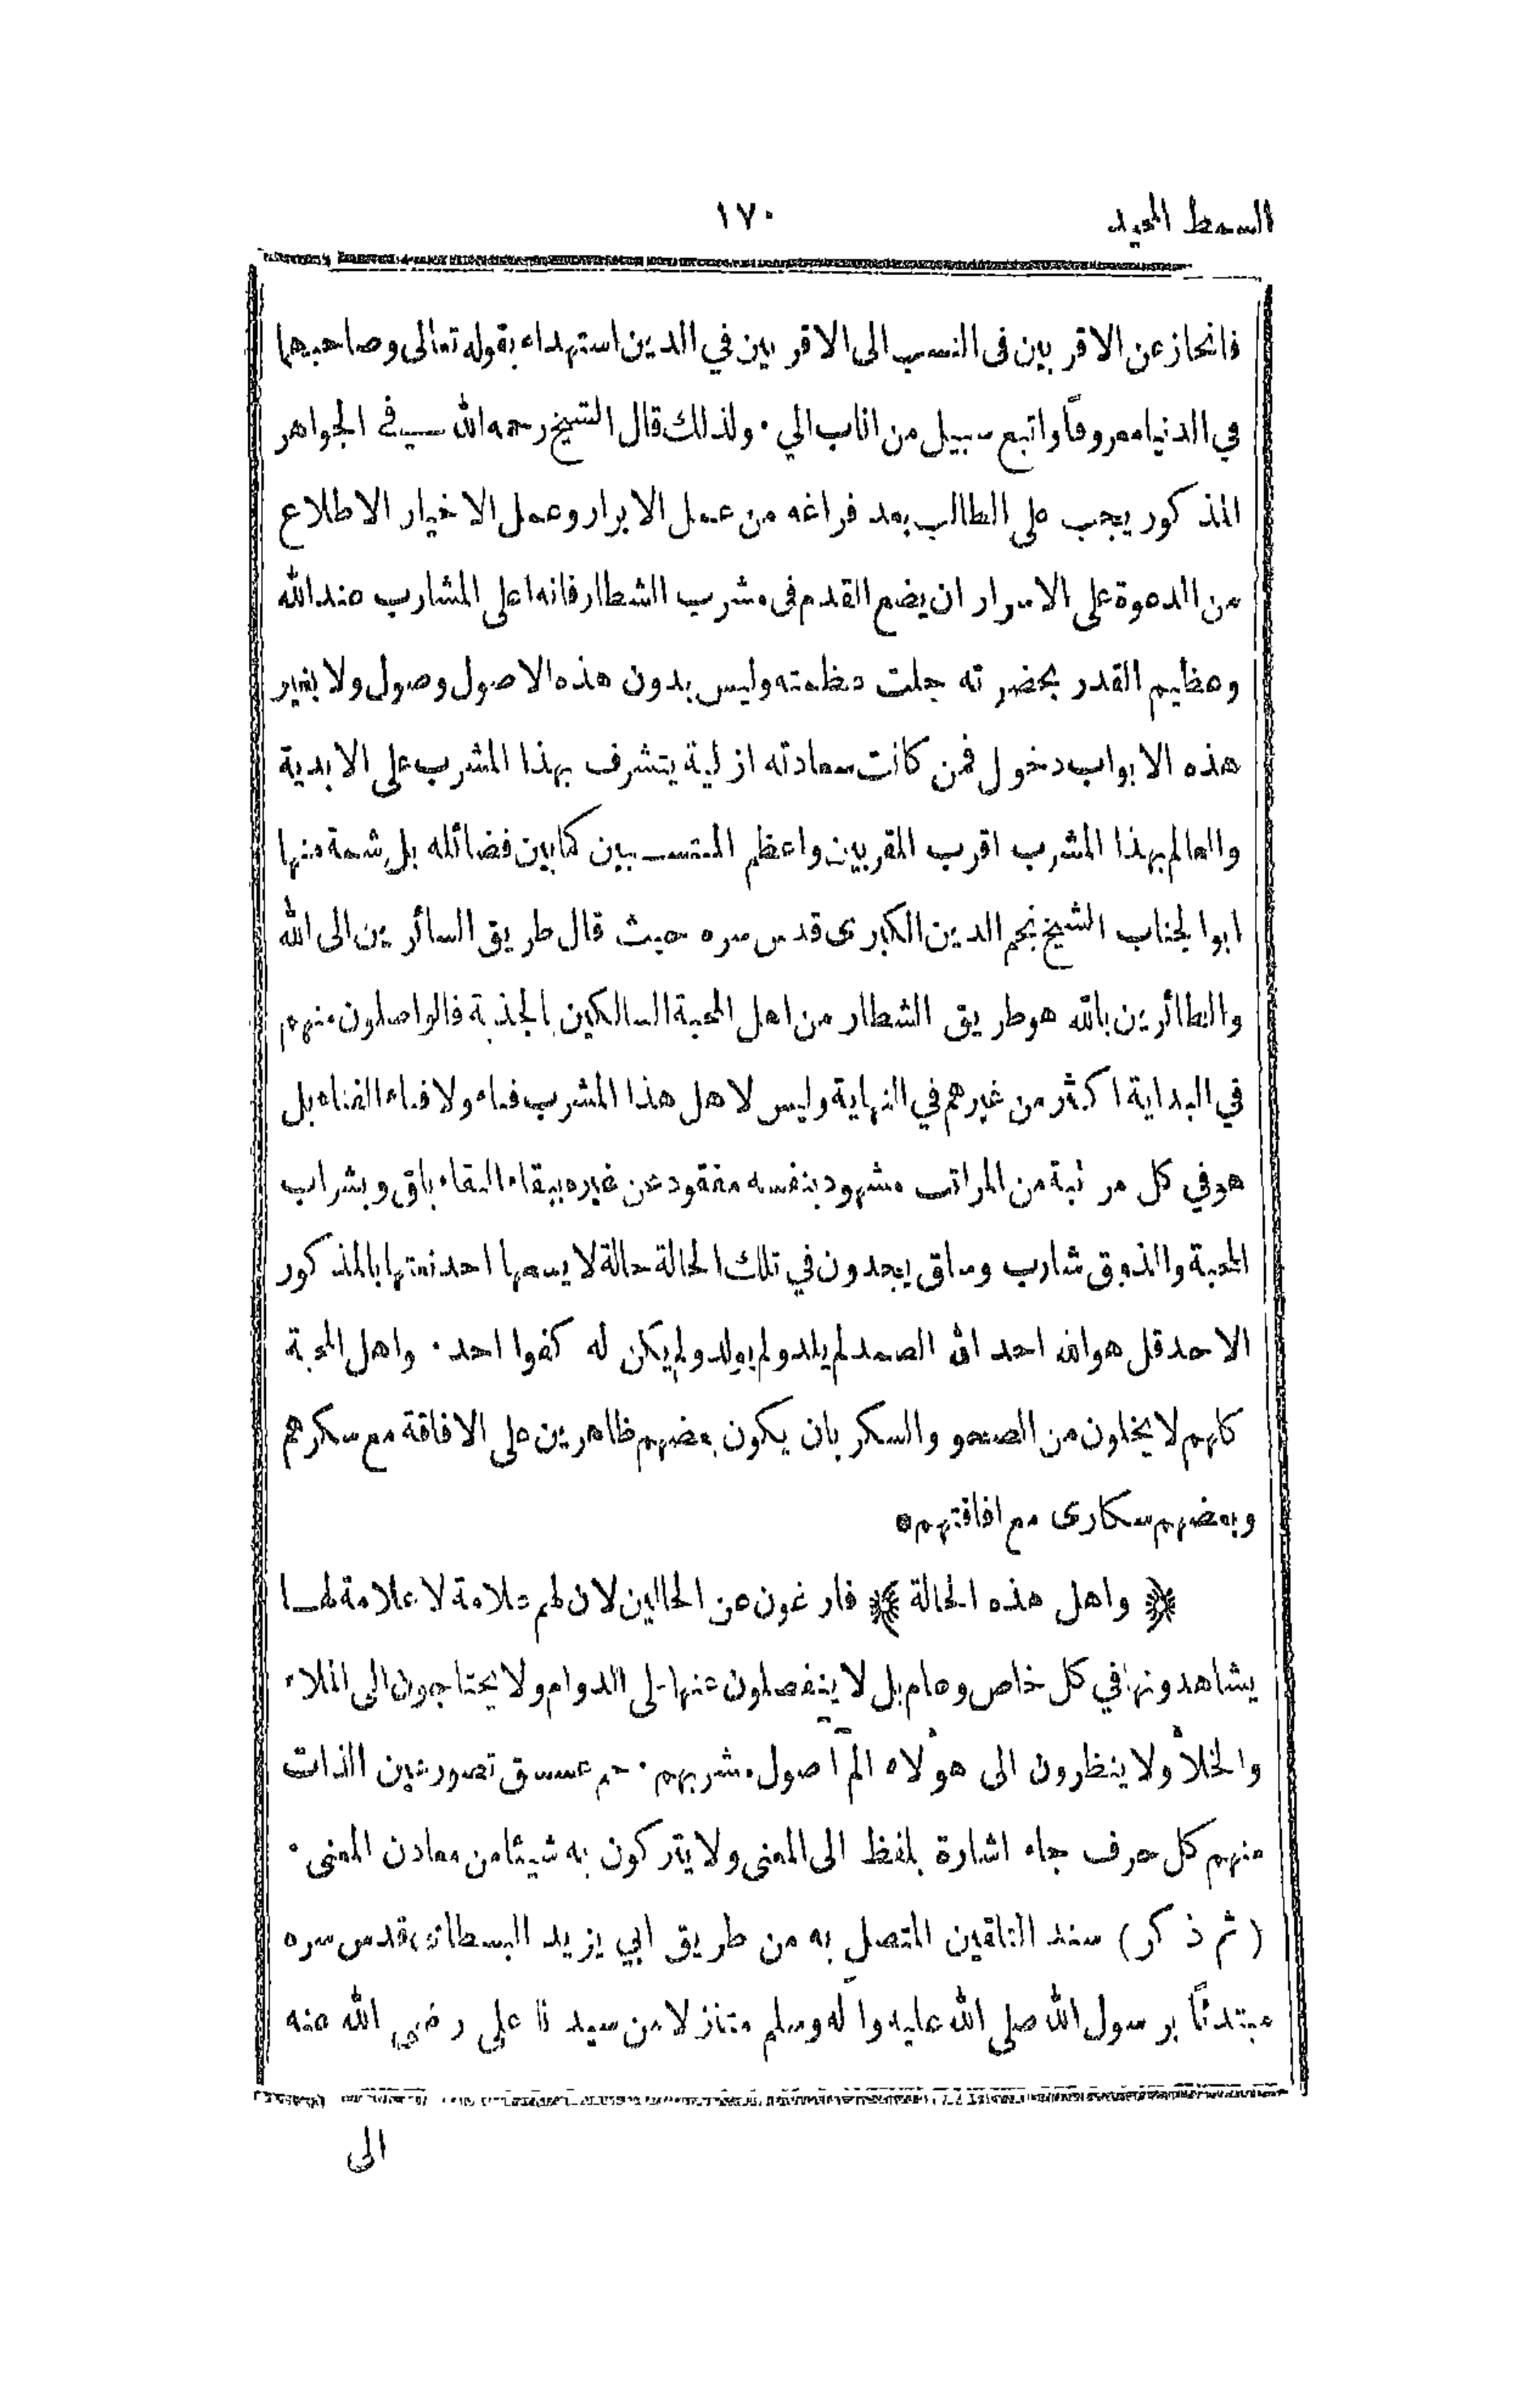 السمط المجيد
١٧٠
فانحاز عن الاقربين فى النسب الى الاقربين في الدين استهداء بقوله تعالى وصاحبهما
في الدنيا معروفاً واتبع سبيل من اناب الي · ولذلك قال الشيخ رحمه الله في الجواهر
المذكور يجب على الطالب بعد فراغه من عمل الابرار وعمل الاخيار الاطلاع
من الدعوة على الاسرار ان يضع القدم فى مشرب الشطار فانه اعلى المشارب عند الله
وعظيم القدر بحضرته جلت عظمته وليس بدون هذه الاصول وصول ولا بغير
هذه الابواب دخول فمن كانت سعادته ازلية يتشرف بهذا المشرب على الابدية
والعالم بهذا المشرب اقرب المقربين واعظم المنتسبين كما بين فضائله بل شمة منها
ابوالجناب الشيخ نجم الدين الكبرى قدس سره حيث قال طريق السائرين الى الله
والطائرين بالله هو طريق الشطار من اهل المحبة السالكين بالجذبة فالواصلون منهم
في البداية اكثر من غيرهم في النهاية وليس لاهل هذا المشرب فناء ولا فناء الفناء بل
هو في كل مرتبة من المراتب مشهود بنفسه مفقود عن غيره ببقاء البقاء باق وبشراب
المحبة والذوق شارب وساق يجدون في تلك الحالة حالة لا يسعها احد نعتها بالمذكور
الاحد قل هو الله احد الله الصمد لم يلد ولم يولد ولم يكن له كفوا احد · واهل المحبة
كلهم لا يخلون من الصحو والسكر بان يكون بعضهم ظاهرين على الافاقة مع سكرهم
وبعضهم سكارى مع افاقتهم ٥
﴿ واهل هذه الحالة ﴾ فارغون عن الحالين لان لهم علامة لا علامة لهــا
يشاهدونها في كل خاص وعام بل لا ينفصلون عنها على الدوام ولا يحتاجون الى الملاء
والخلأ ولا ينظرون الى هؤلاء الٓمٓ اصول مشربهم · حم عسق تصور عين الذات
منهم كل حرف جاء اشارة بلفظ الى المعنى ولا يتركون به شيئا من معادن المعنى ·
( ثم ذكر ) سند التلقين المتصل به من طريق ابي يزيد البسطامي قدس سره
مبتدئاً برسول الله صلى الله عليه وآله وسلم متنازلا من سيدنا على رضي الله عنه
الى